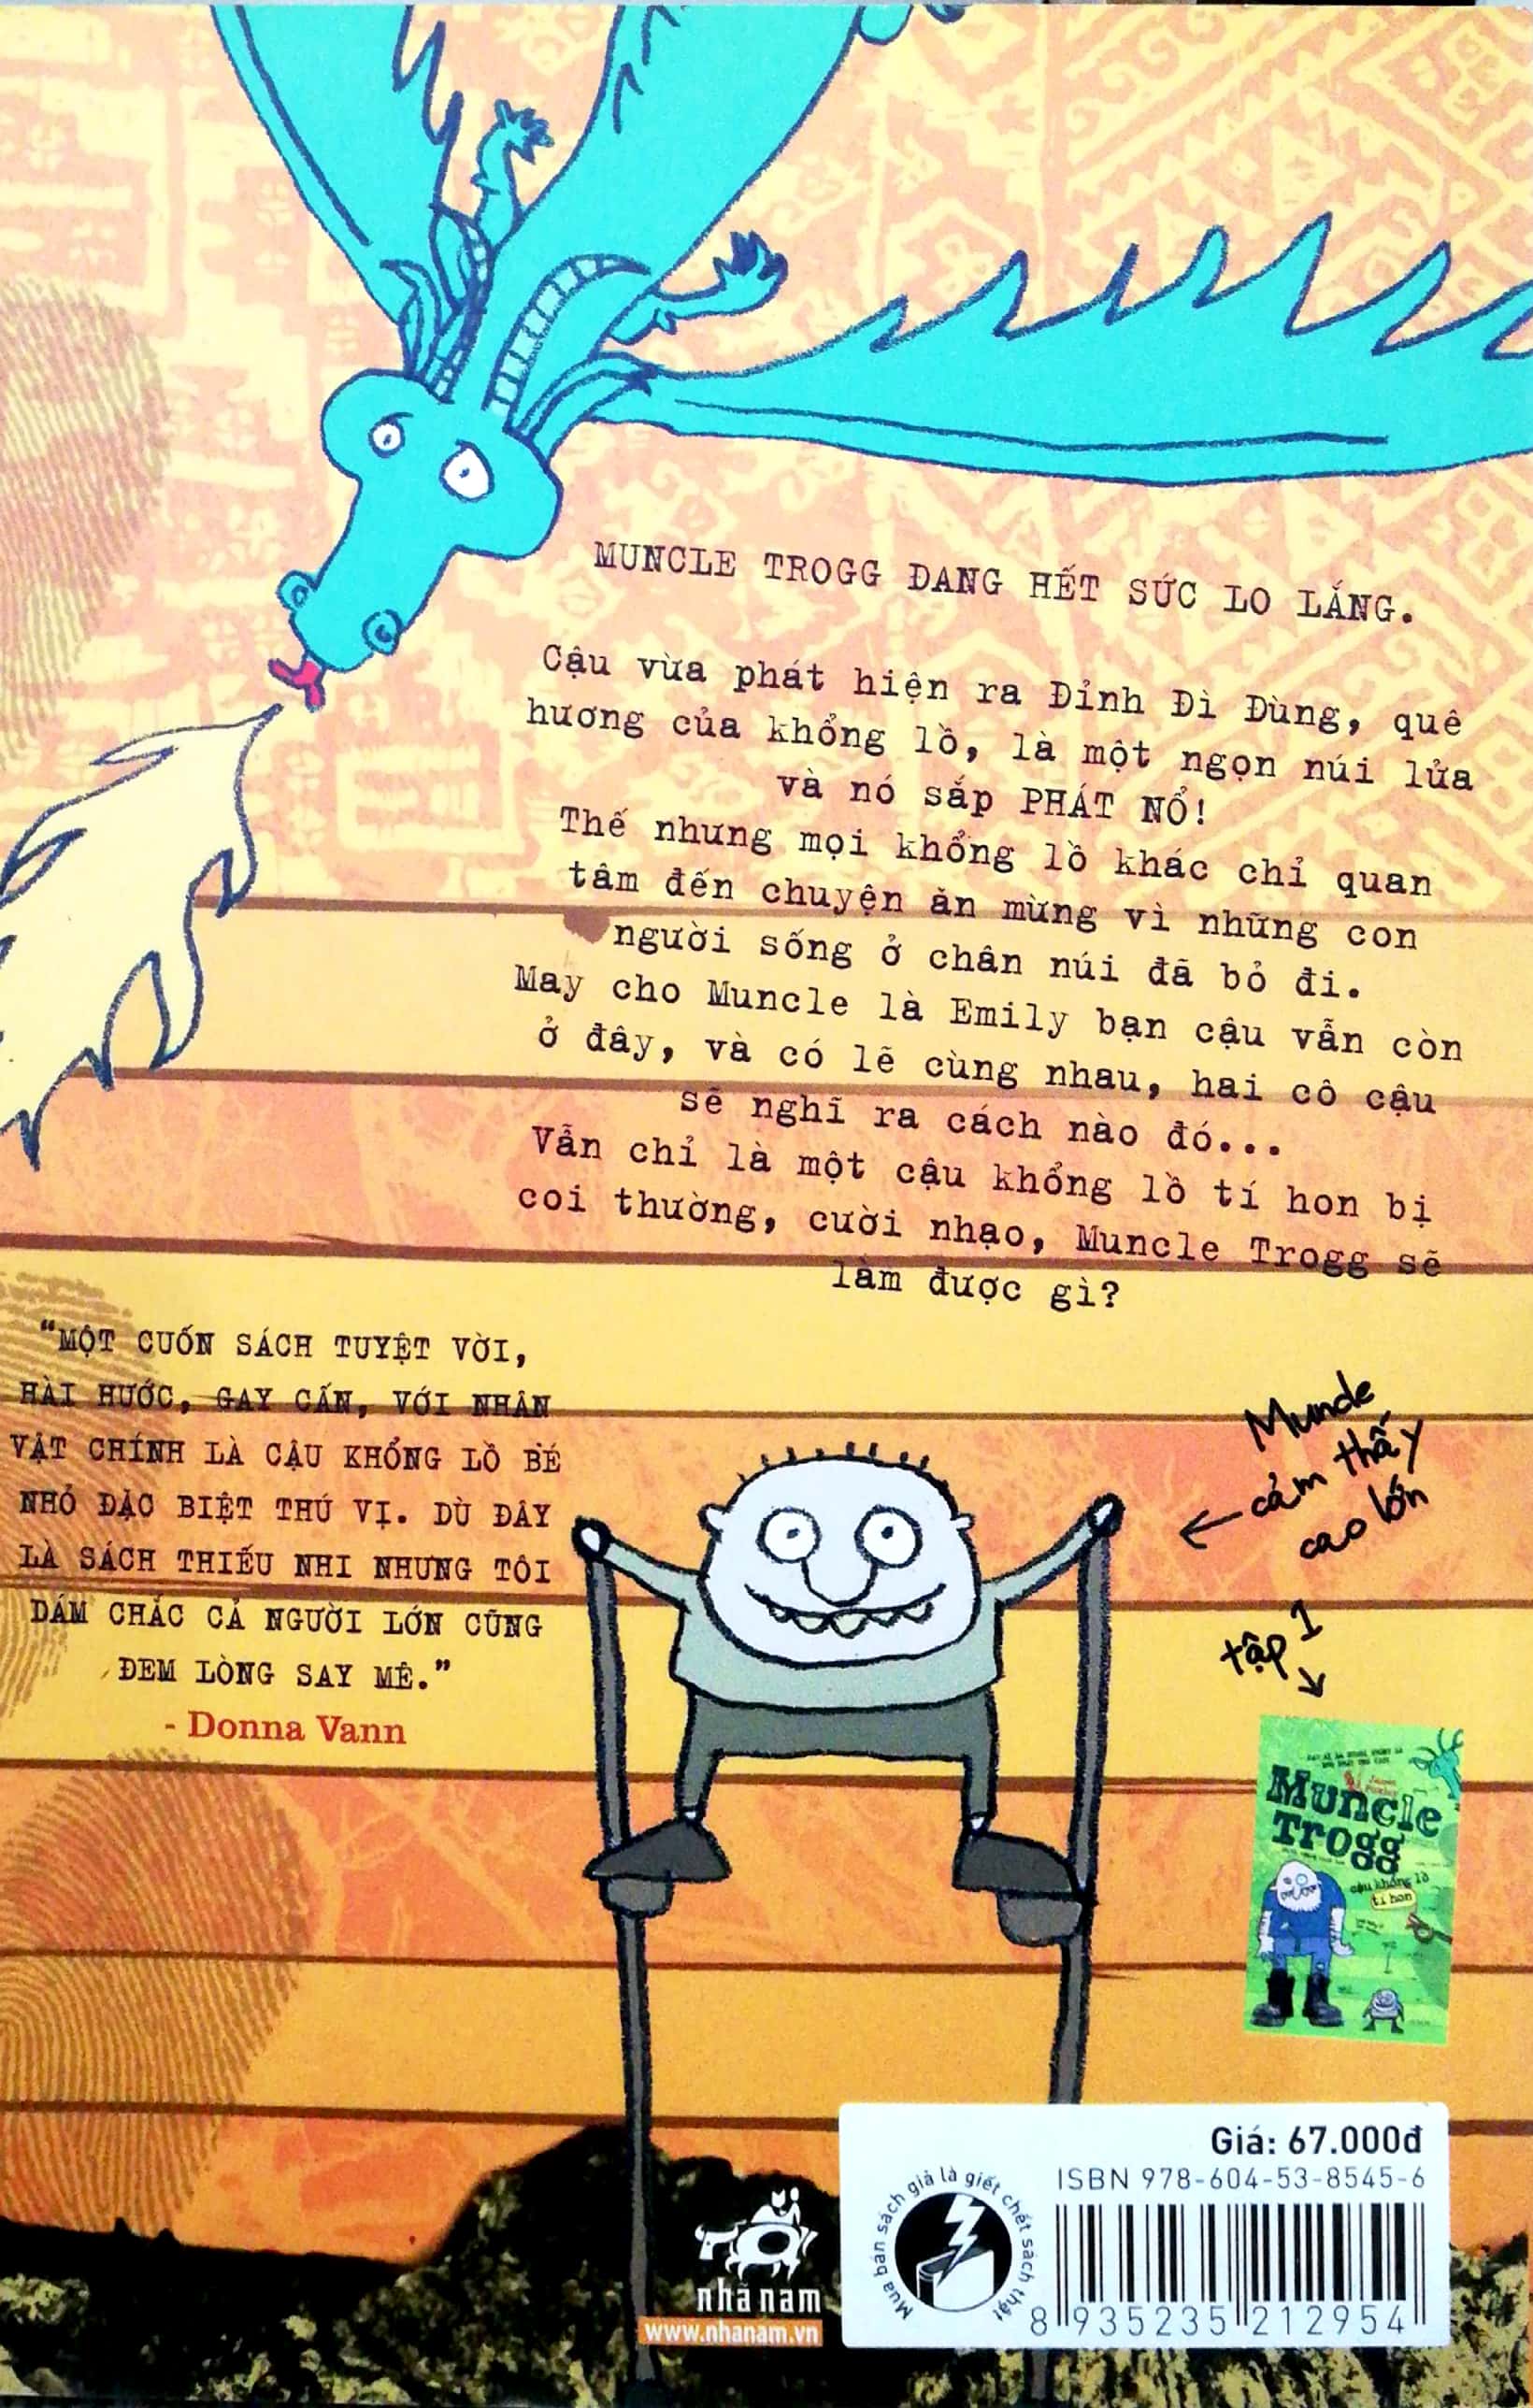 MUNCLE TROGG ĐANG HẾT SỨC LO LẮNG.
Cậu vừa phát hiện ra Đỉnh Đì Đùng, quê
hương của khổng lồ, là một ngọn núi lửa
và nó sắp PHÁT NỔ!
Thế nhưng mọi khổng lồ khác chỉ quan
tâm đến chuyện ăn mừng vì những con
người sống ở chân núi đã bỏ đi.
May cho Muncle là Emily bạn cậu vẫn còn
ở đây, và có lẽ cùng nhau, hai cô cậu
sẽ nghĩ ra cách nào đó...
Vẫn chỉ là một cậu khổng lồ tí hon bị
coi thường, cười nhạo, Muncle Trogg sẽ
làm được gì?
“MỘT CUỐN SÁCH TUYỆT VỜI,
HÀI HƯỚC, GAY CẤN, VỚI NHÂN
VẬT CHÍNH LÀ CẬU KHỔNG LỒ BÉ
NHỎ ĐẶC BIỆT THÚ VỊ. DÙ ĐÂY
LÀ SÁCH THIẾU NHI NHƯNG TÔI
DÁM CHẮC CẢ NGƯỜI LỚN CŨNG
ĐEM LÒNG SAY MÊ.”
- Donna Vann
Muncle
cảm thấy
cao lớn
tập 1
Muncle
Trogg
cậu khổng lồ
tí hon
Giá: 67.000đ
ISBN 978-604-53-8545-6
Mua bán sách giả là giết chết sách thật
8 935235 212954
nhã nam
www.nhanam.vn